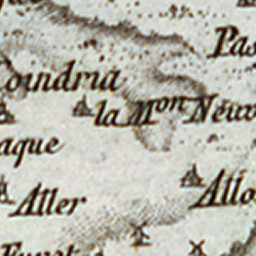 Pas
Coindria
la Mon Neuv
aque
Aller
Allo